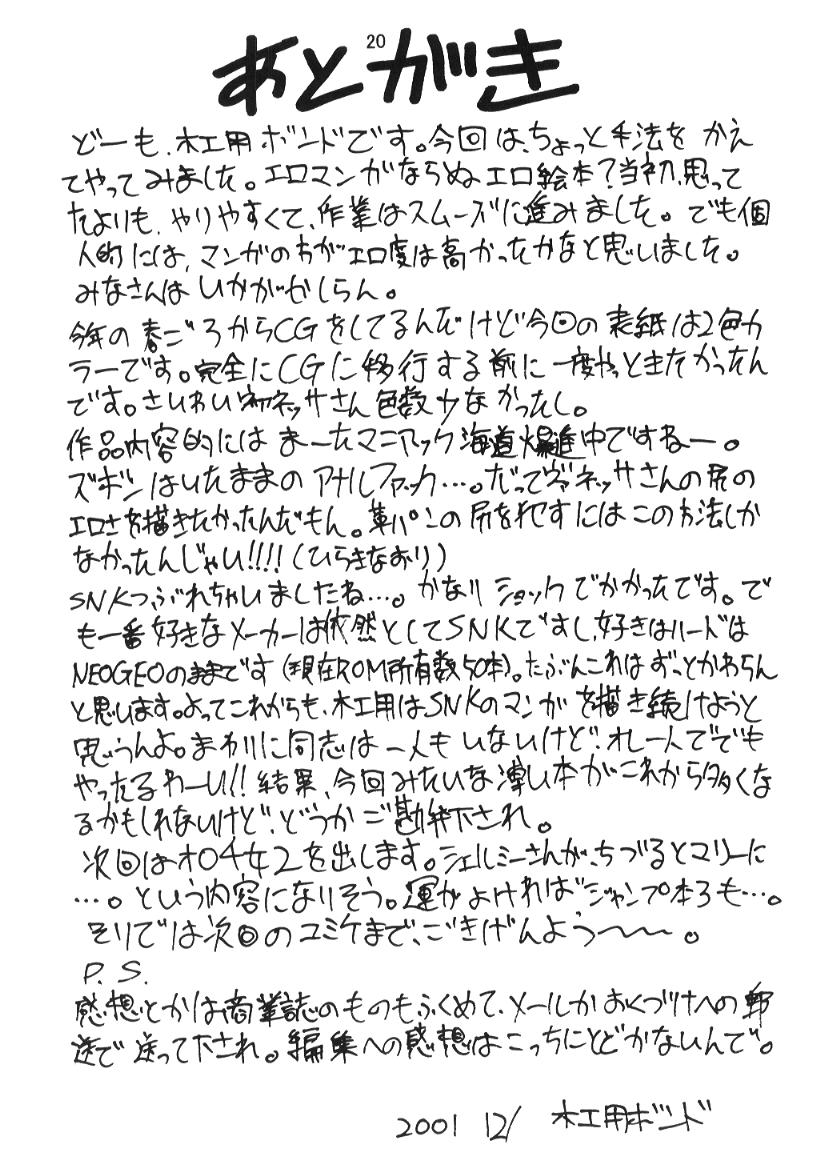 20
あとがき
どーも、木工用ボンドです。今回は、ちょっと手法をかえ
てやってみました。エロマンがならぬエロ絵本?当初、思って
たよりも、やりやすくて、作業はスムーズに進みました。でも個
人的には、マンガの方がエロ度は高かったかなと思いました。
みなさんはいかがかしらん。
今年の春ごろからCGをしてるんだけど今回の表紙は2色カ
ラーです。完全にCGに移行する前に一度やっときたかったん
です。さいわいヴァネッサさん色数少なかったし。
作品内容的にはまーたマニアック海道爆進中ですねー。
ズボンはいたままのアナルファック…。だってヴァネッサさんの尻の
エロさを描きたかったんだもん。革パンの尻を犯すにはこの方法しか
なかったんじゃい!!!!(ひらきなおり)
SNKつぶれちゃいましたね…。かなりショックでかかったです。で
も一番好きなメーカーは依然としてSNKですし、好きはハードは
NEOGEOのままです(現在ROM所有数50本)。たぶんこれはずっとかわらん
と思います。よってこれからも、木工用はSNKのマンガを描き続けようと
思うんよ。まわりに同志は一人もいないけど、オレ一人ででも
やったるわーい!!結果、今回みたいな薄い本がこれから多くな
るかもしれないけど、どうかご勘弁下され。
次回はオロチ女2を出します。シェルミーさんが、ちづるとマリーに
…。という内容になりそう。運がよければジャンプ本3も…。
そりでは次回のコミケまで、ごきげんよう〜〜。
P.S.
感想とかは商業誌のものもふくめて、メールかおくづけへの郵
送で送って下され。編集への感想はこっちにとどかないんで。
2001 12/ 木工用ボンド